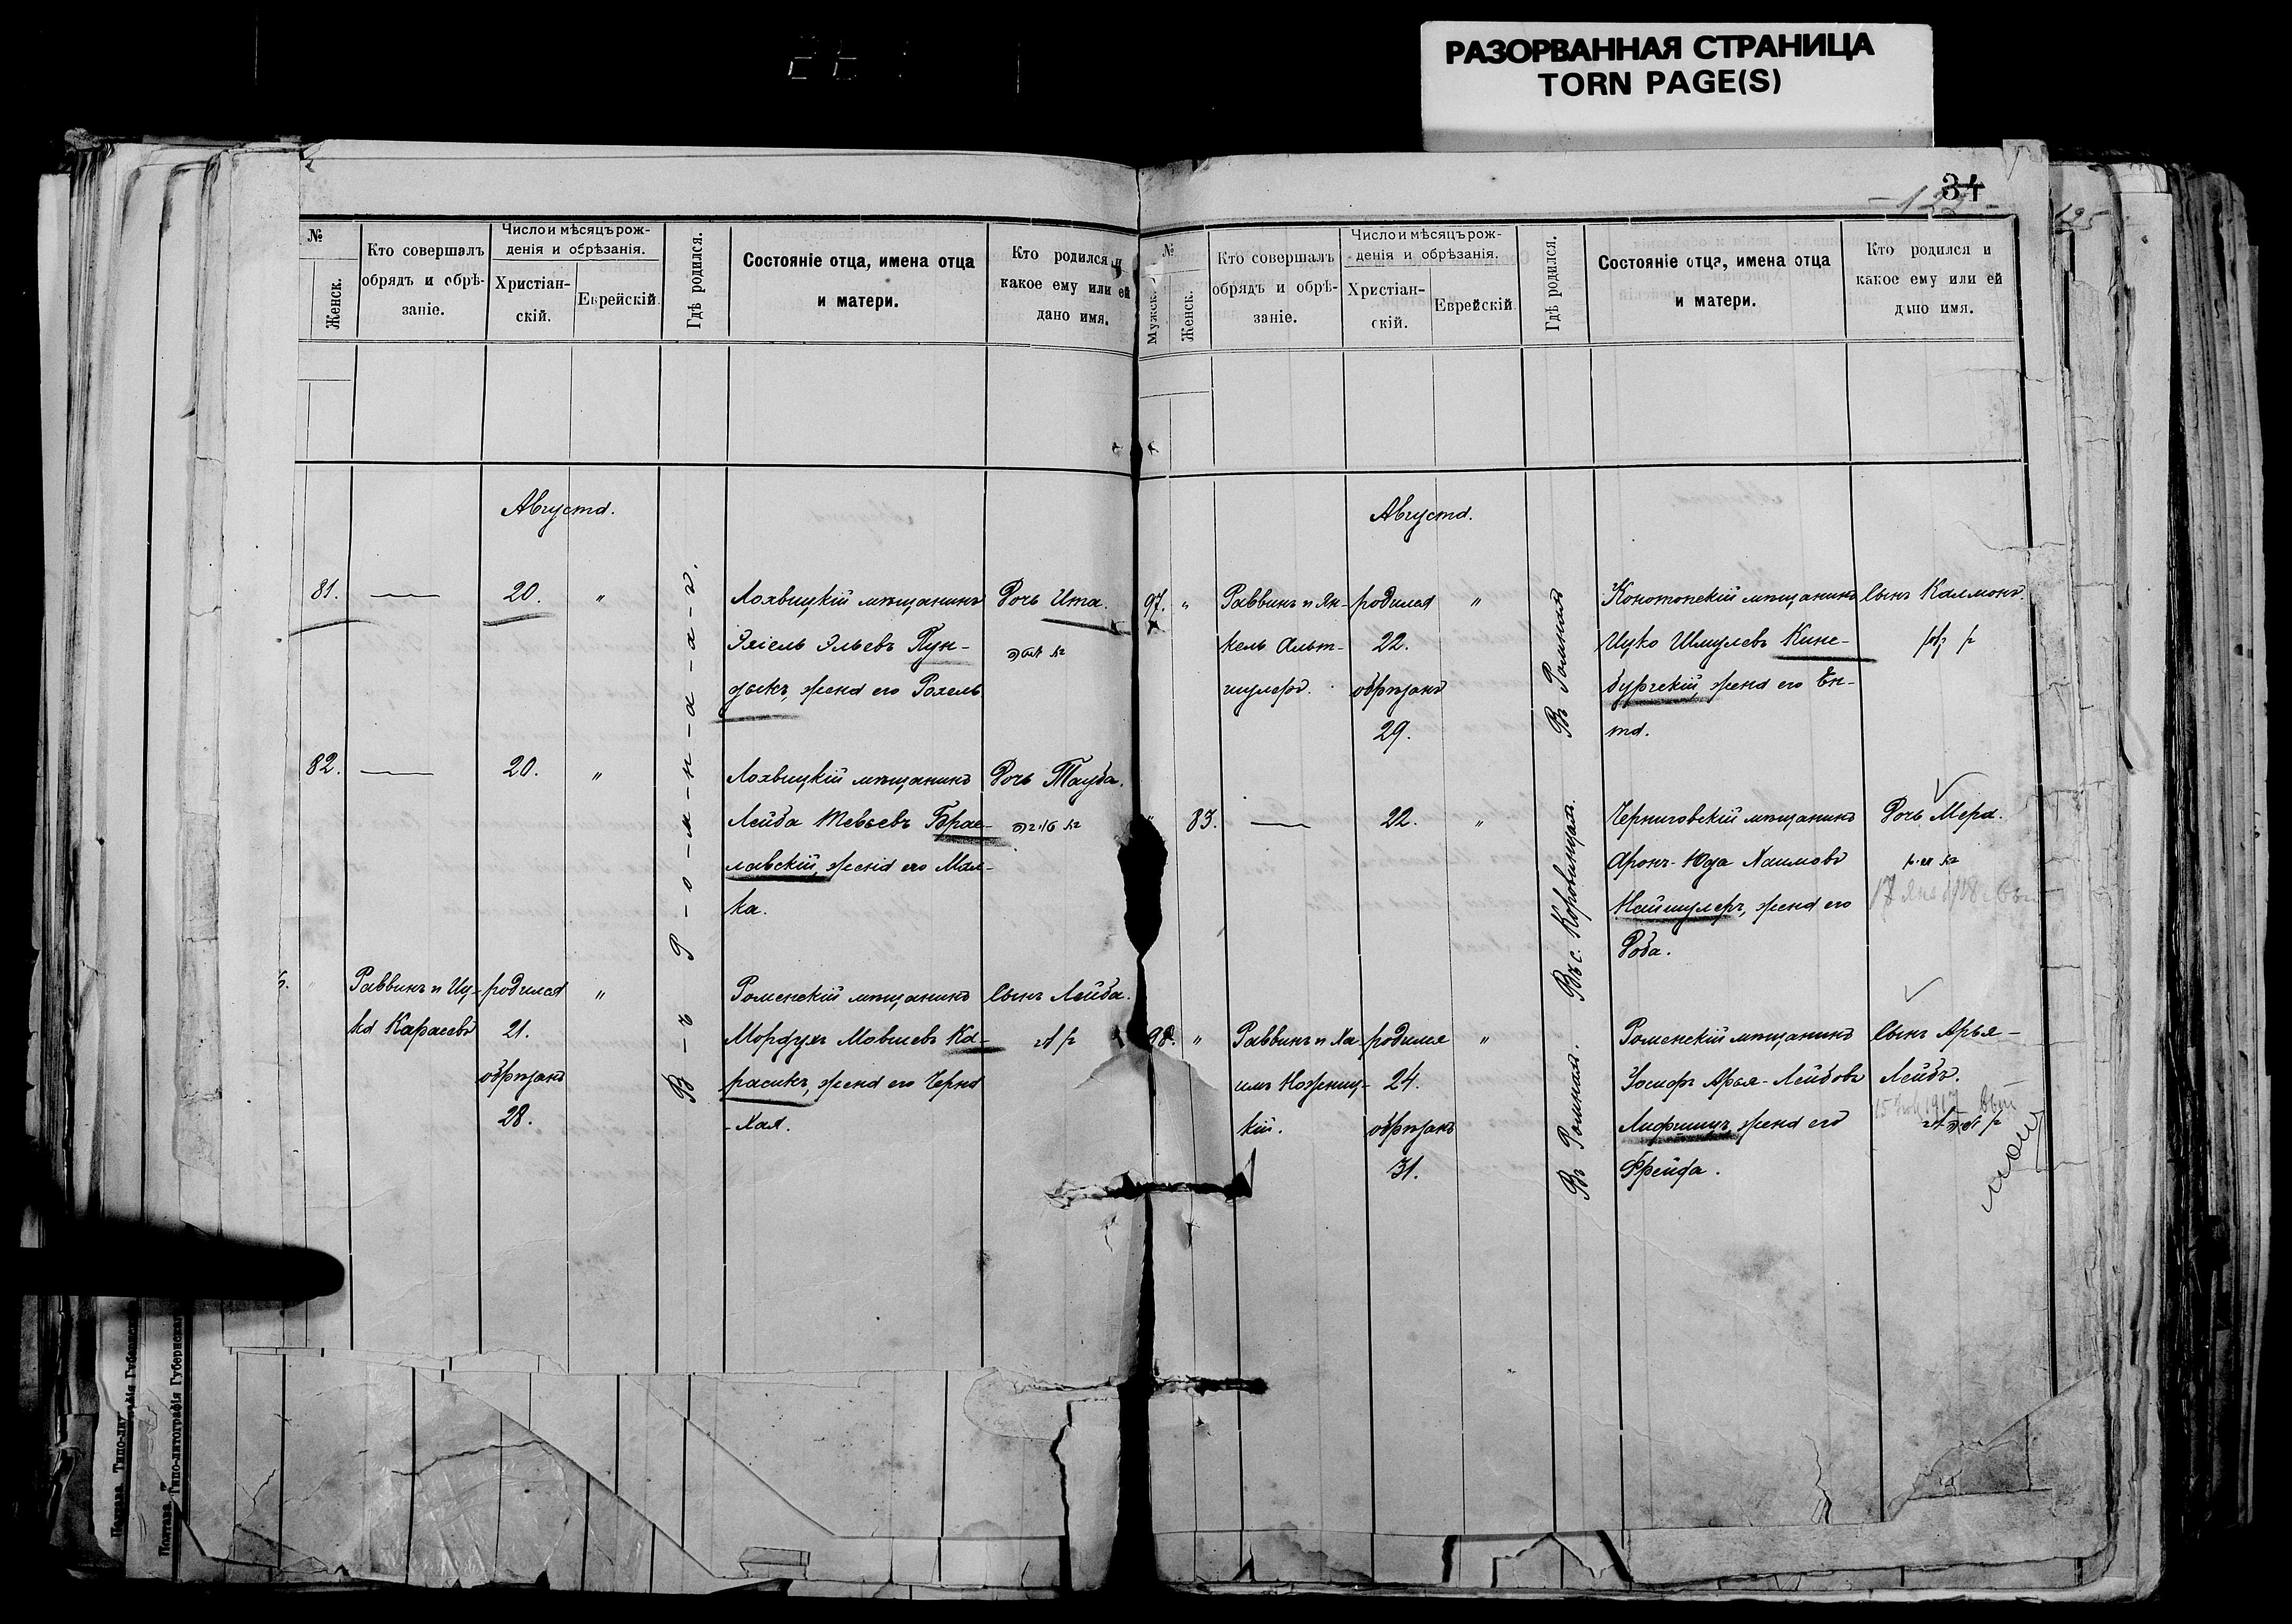 РАЗОРВАННАЯ СТРАНИЦА
TORN PAGE(S)
34
125
№
Женск.
Кто совершалъ
обрядъ и обрѣ-
заніе.
Число и мѣсяцъ рож-
денія и обрѣзанія.
Христіан-
скій.
Еврейскій.
Гдѣ родился.
Состояніе отца, имена отца
и матери.
Кто родился и
какое ему или ей
дано имя.
Августа.
81.
20.
"
Лохвицкій мѣщанинъ
Эхіель Эльевъ Пун-
дыкъ, жена его Рохель
Дочь Ита.
82.
20.
"
Лохвицкій мѣщанинъ
Лейба Тевьевъ Брас-
лавскій, жена его Мал-
ка.
Дочь Тауба.
Раввинъ и Иц-
ка Карасевъ
родился
21.
обрѣзанъ
28.
"
Роменскій мѣщанинъ
Мордухъ Мовшевъ Ка-
расикъ, жена его Черна
-Хая.
Сынъ Лейба.
В-ъ Р-о-м-н-а-х-ъ.
№
Мужск.
Женск.
Кто совершалъ
обрядъ и обрѣ-
заніе.
Число и мѣсяцъ рож-
денія и обрѣзанія.
Христіан-
скій.
Еврейскій.
Гдѣ родился.
Состояніе отца, имена отца
и матери.
Кто родился и
какое ему или ей
дано имя.
Августа.
97.
"
Раввинъ и Ян-
кель Альт-
шулеръ.
родился
22.
обрѣзанъ
29.
"
Въ Ромнахъ
Конотопскій мѣщанинъ
Ицко Шмулевъ Кине-
бургскій, жена его Ен-
та.
Сынъ Калмонъ.
83.
22.
"
Въ с. Коровинцахъ.
Черниговскій мѣщанинъ
Аронъ-Юда Хаимовъ
Наишулеръ, жена его
Доба.
Дочь Мера.
98.
"
Раввинъ и Ха-
имъ Ножниц-
кій.
родился
24.
обрѣзанъ
31.
"
Въ Ромнахъ.
Роменскій мѣщанинъ
Іосифъ Арья-Лейбовъ
Лифшицъ, жена его
Фрейда.
Сынъ Арья-
Лейбъ.
1917